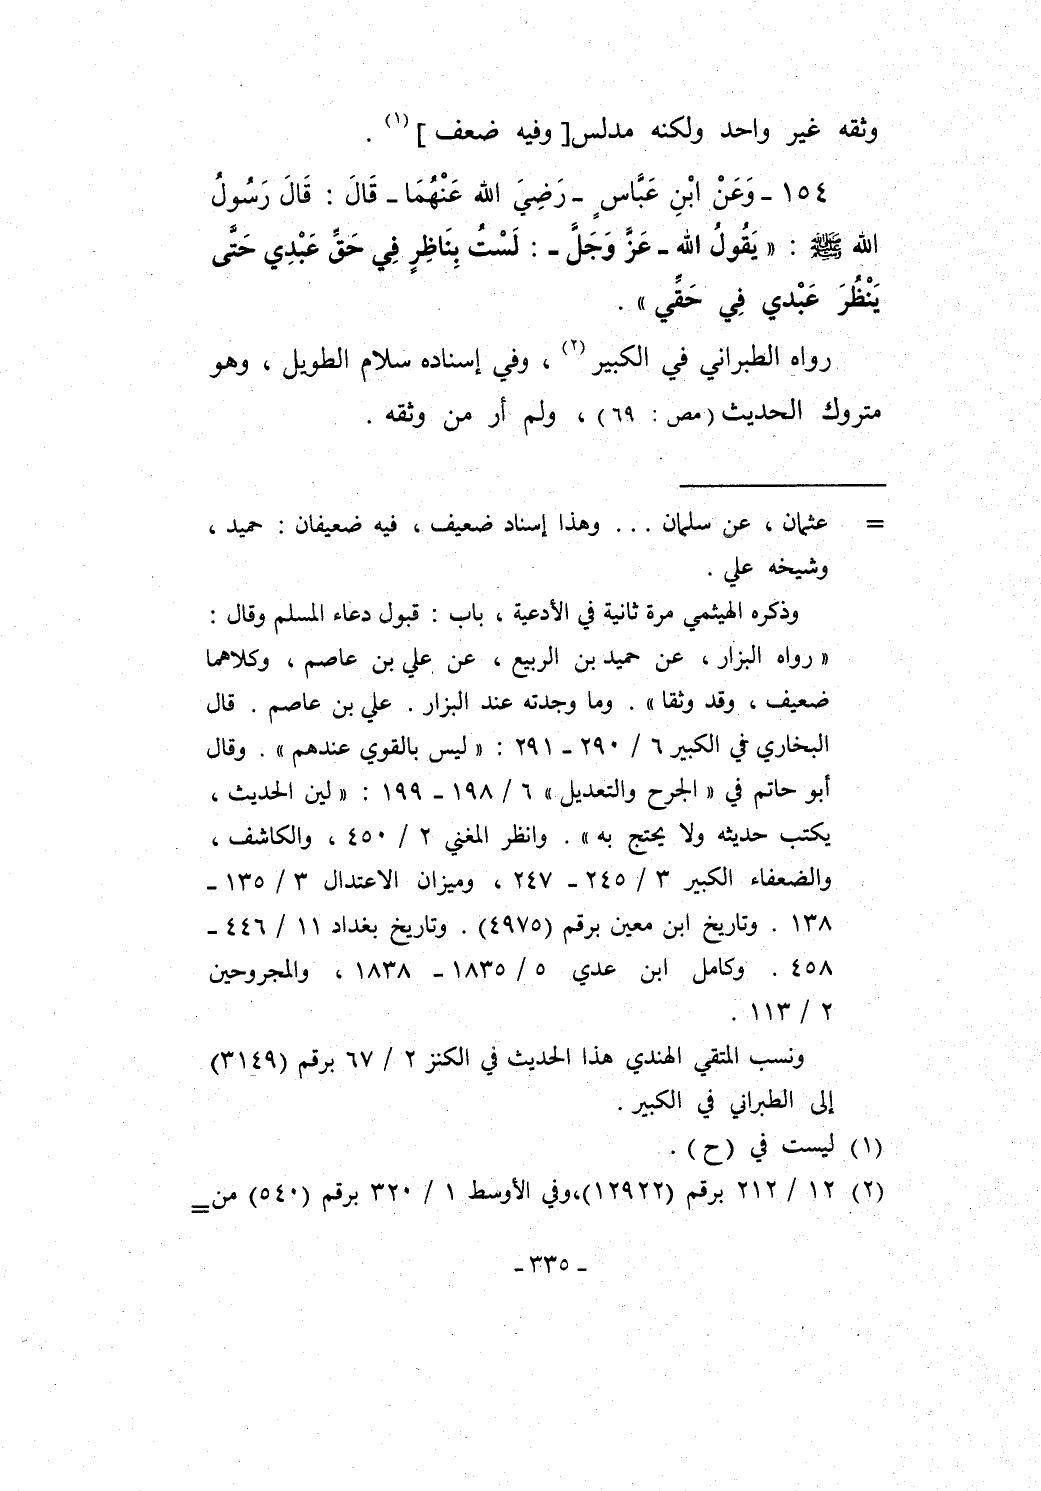 وثقه غير واحد ولكنه مدلس [ وفيه ضعف ] (١) .
١٥٤ ـ وَعَنْ ابْنِ عَبَّاسٍ ـ رَضِيَ الله عَنْهُمَا ـ قَالَ : قَالَ رَسُولُ
الله ﷺ : « يَقُولُ الله ـ عَزَّ وَجَلَّ ـ : لَسْتُ بِنَاظِرٍ فِي حَقِّ عَبْدِي حَتَّى
يَنْظُرَ عَبْدي فِي حَقِّي » .
رواه الطبراني في الكبير (٢) ، وفي إسناده سلام الطويل ، وهو
متروك الحديث (مص : ٦٩) ، ولم أر من وثقه .
= عثمان ، عن سلمان ... وهذا إسناد ضعيف ، فيه ضعيفان : حميد ،
وشيخه علي .
وذكره الهيثمي مرة ثانية في الأدعية ، باب : قبول دعاء المسلم وقال :
« رواه البزار ، عن حميد بن الربيع ، عن علي بن عاصم ، وكلاهما
ضعيف ، وقد وثقا » . وما وجدته عند البزار . علي بن عاصم . قال
البخاري في الكبير ٦ / ٢٩٠ ـ ٢٩١ : « ليس بالقوي عندهم » . وقال
أبو حاتم في « الجرح والتعديل » ٦ / ١٩٨ ـ ١٩٩ : « لين الحديث ،
يكتب حديثه ولا يحتج به » . وانظر المغني ٢ / ٤٥٠ ، والكاشف ،
والضعفاء الكبير ٣ / ٢٤٥ ـ ٢٤٧ ، وميزان الاعتدال ٣ / ١٣٥ ـ
١٣٨ . وتاريخ ابن معين برقم (٤٩٧٥) . وتاريخ بغداد ١١ / ٤٤٦ ـ
٤٥٨ . وكامل ابن عدي ٥ / ١٨٣٥ ـ ١٨٣٨ ، والمجروحين
٢ / ١١٣ .
ونسب المتقي الهندي هذا الحديث في الكنز ٢ / ٦٧ برقم (٣١٤٩)
إلى الطبراني في الكبير .
(١) ليست في (ح) .
(٢) ١٢ / ٢١٢ برقم (١٢٩٢٢)، وفي الأوسط ١ / ٣٢٠ برقم (٥٤٠) من =
ـ ٣٣٥ ـ